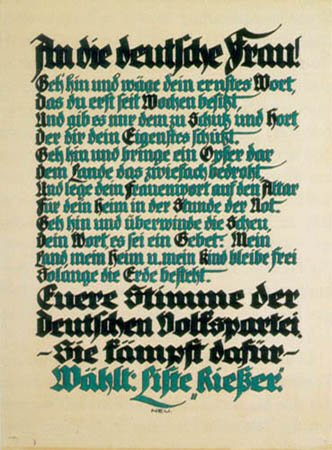 An die deutsche Frau!
Geh hin und wäge dein ernstes Wort,
Das du erst seit Wochen besitzt
Und gib es nur dem zu Schutz und Hort,
Der dir dein Eigenstes schützt.
Geh hin und bringe ein Opfer dar
Dem Lande das zwiefach bedroht
Und lege dein Frauenwort auf den Altar
Für dein Heim in der Stunde der Not.
Geh hin und überwinde die Scheu
Dein Wort, es sei ein Gebet: Mein
Land mein Heim u. mein Kind bleibe frei
Solange die Erde besteht.
Euere Stimme der
Deutschen Volkspartei.
– Sie kämpft dafür –
Wählt: Liste Rießer."
NEU.